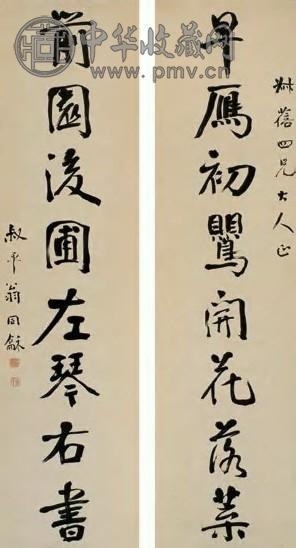 中华收藏网
www.pmv.cn
四兄大人正
早鴈初鸎開花落葉
前園後圃左琴右書
叔平翁同龢